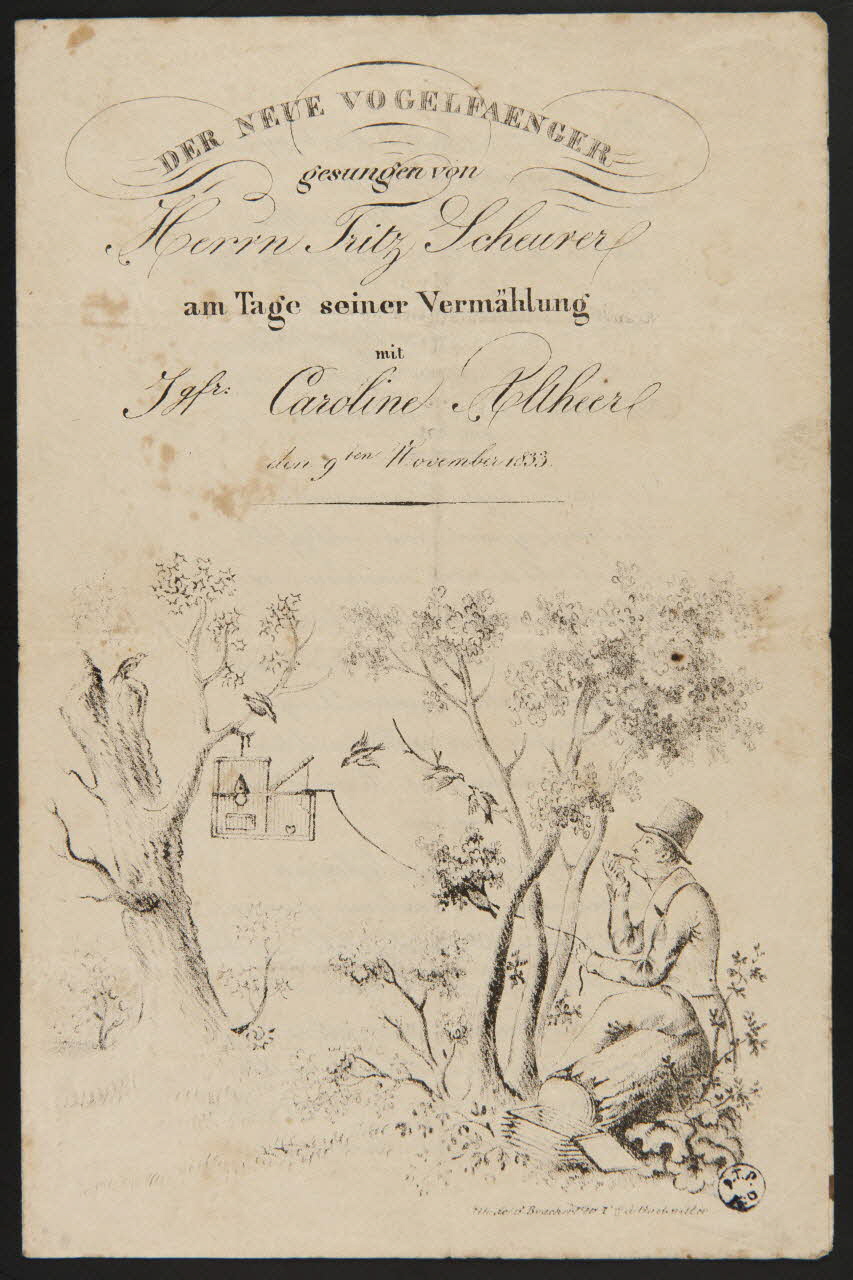 DER NEUE VOGELFAENGER
gesungen von
Herrn Fritz Scheurer
am Tage seiner Vermählung
mit
Jgfr: Caroline Altheer
den 9ten November 1833.